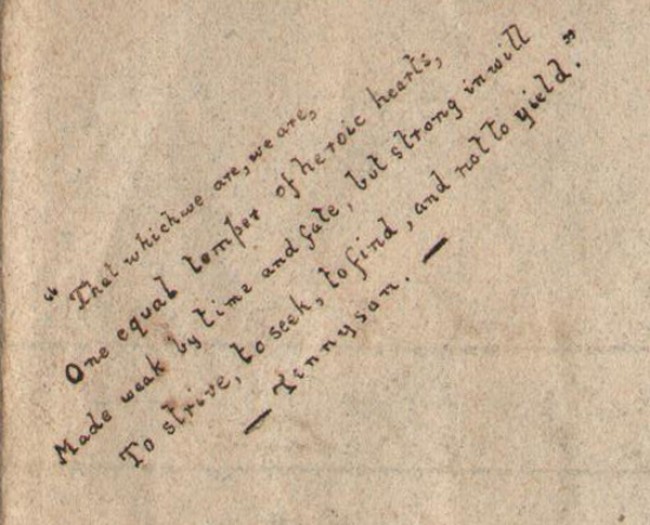 "That which we are, we are,
One equal temper of heroic hearts,
Made weak by time and fate, but strong in will
To strive, to seek, to find, and not to yield."
— Tennyson. —